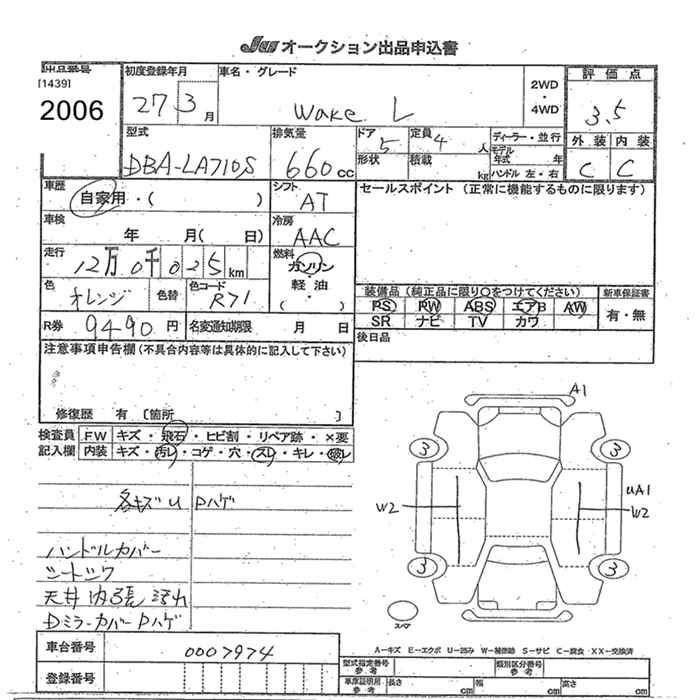 JU オークション出品申込書
出品番号 初度登録年月 車名・グレード 2WD・4WD 評価点
[1439]
2006 27 3月 Wake L 3.5
型式 排気量 ドア 5 定員 4人 ディーラー・並行 外装 内装
DBA-LA710S 660cc 形状 積載 kg モデル年式 年 ハンドル 左・右 C C
車歴 自家用・( ) シフト AT セールスポイント (正常に機能するものに限ります)
車検 年 月( 日) 冷房 AAC
走行 12万0千025km 燃料 ガソリン 軽油 ・( )
色 オレンジ 色替 色コード R71
装備品 (純正品に限り○をつけてください) 新車保証書
PS PW ABS エアB AW 有・無
SR ナビ TV カワ
R券 9490円 名変通知期限 月 日
後日品
注意事項申告欄 (不具合内容等は具体的に記入して下さい)
修復歴 有 〔箇所 〕
検査員 FW キズ・飛石・ヒビ割・リペア跡・×要
記入欄 内装 キズ・汚レ・コゲ・穴・スレ・キレ・破レ
各キズU Pハゲ
ハンドルカバー
シートシワ
天井内張汚れ
Dミラーカバー Pハゲ
A1
3 3
UA1
W2 W2
3 3
スマ
A-キズ E-エクボ U-凹み W-補修跡 S-サビ C-腐食 XX-交換済
車台番号 0007974
登録番号
型式指定番号 参考 類別区分番号 参考
車庫証明用 参考 長さ cm 幅 cm 高さ cm